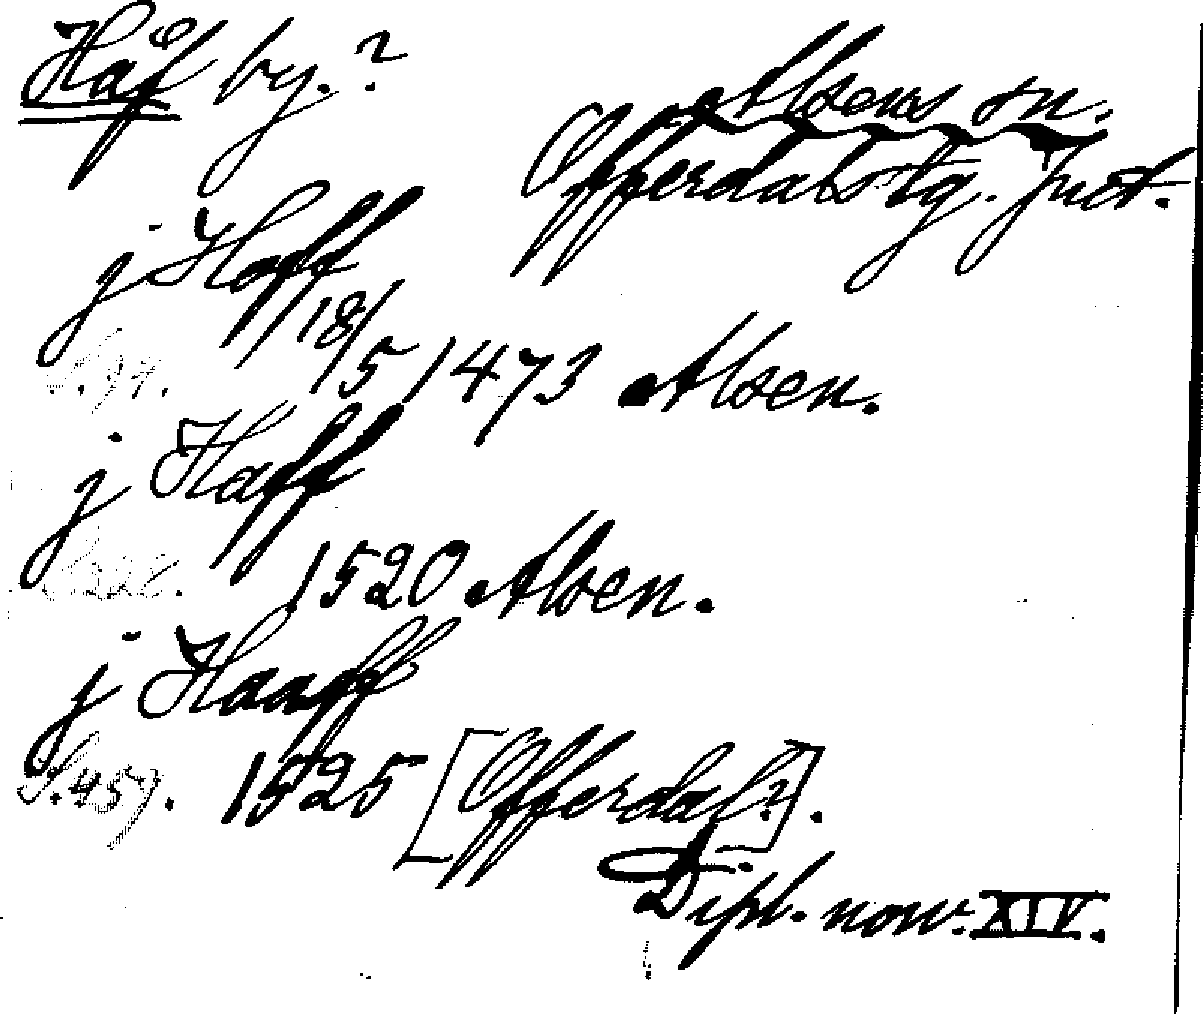 Håf by.?
Alsens sn.
Offerdals tg. Jmt.
j Haff
18/5 1473 Alsen.
j Haff
1520 Alsen.
j Haaff
S.457. 1525 [Offerdal?].
Dipl. norv. XIV.